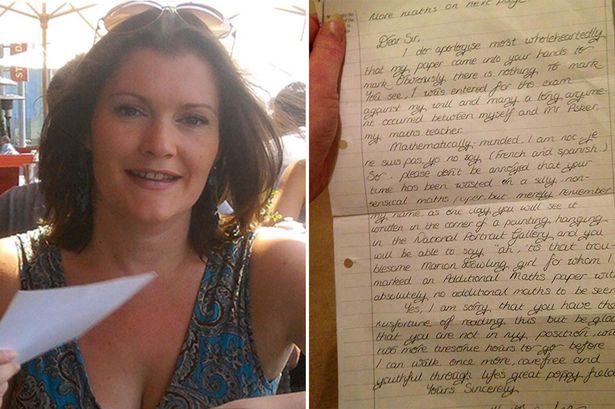 More maths on next page
Dear Sir,
I do apologise most wholeheartedly
that my paper came into your hands to
mark. Obviously there is nothing to mark.
You see, I was entered for the exam
against my will and many a long argume-
nt occurred between myself and Mr
my maths teacher.
Mathematically minded I am not, je
ne suis pas, yo no soy (French and spanish)
Sir, please don't be annoyed that your
time has been wasted on a silly, non-
sensical maths paper but merely remember
my name, as one day you will see it
written in the corner of a painting, hanging
in the National Portrait Gallery and you
will be able to say, "ah, 'tis that trou-
blesome Marion Dowling girl for whom I
marked an Additional Maths paper with
absolutely no additional maths to be seen
Yes, I am sorry that you have the
misfortune of reading this but be glad
that you are not in my position with
two more tiresome hours to go before
I can walk once more, carefree and
youthful through life's great poppy field
Yours Sincerely,